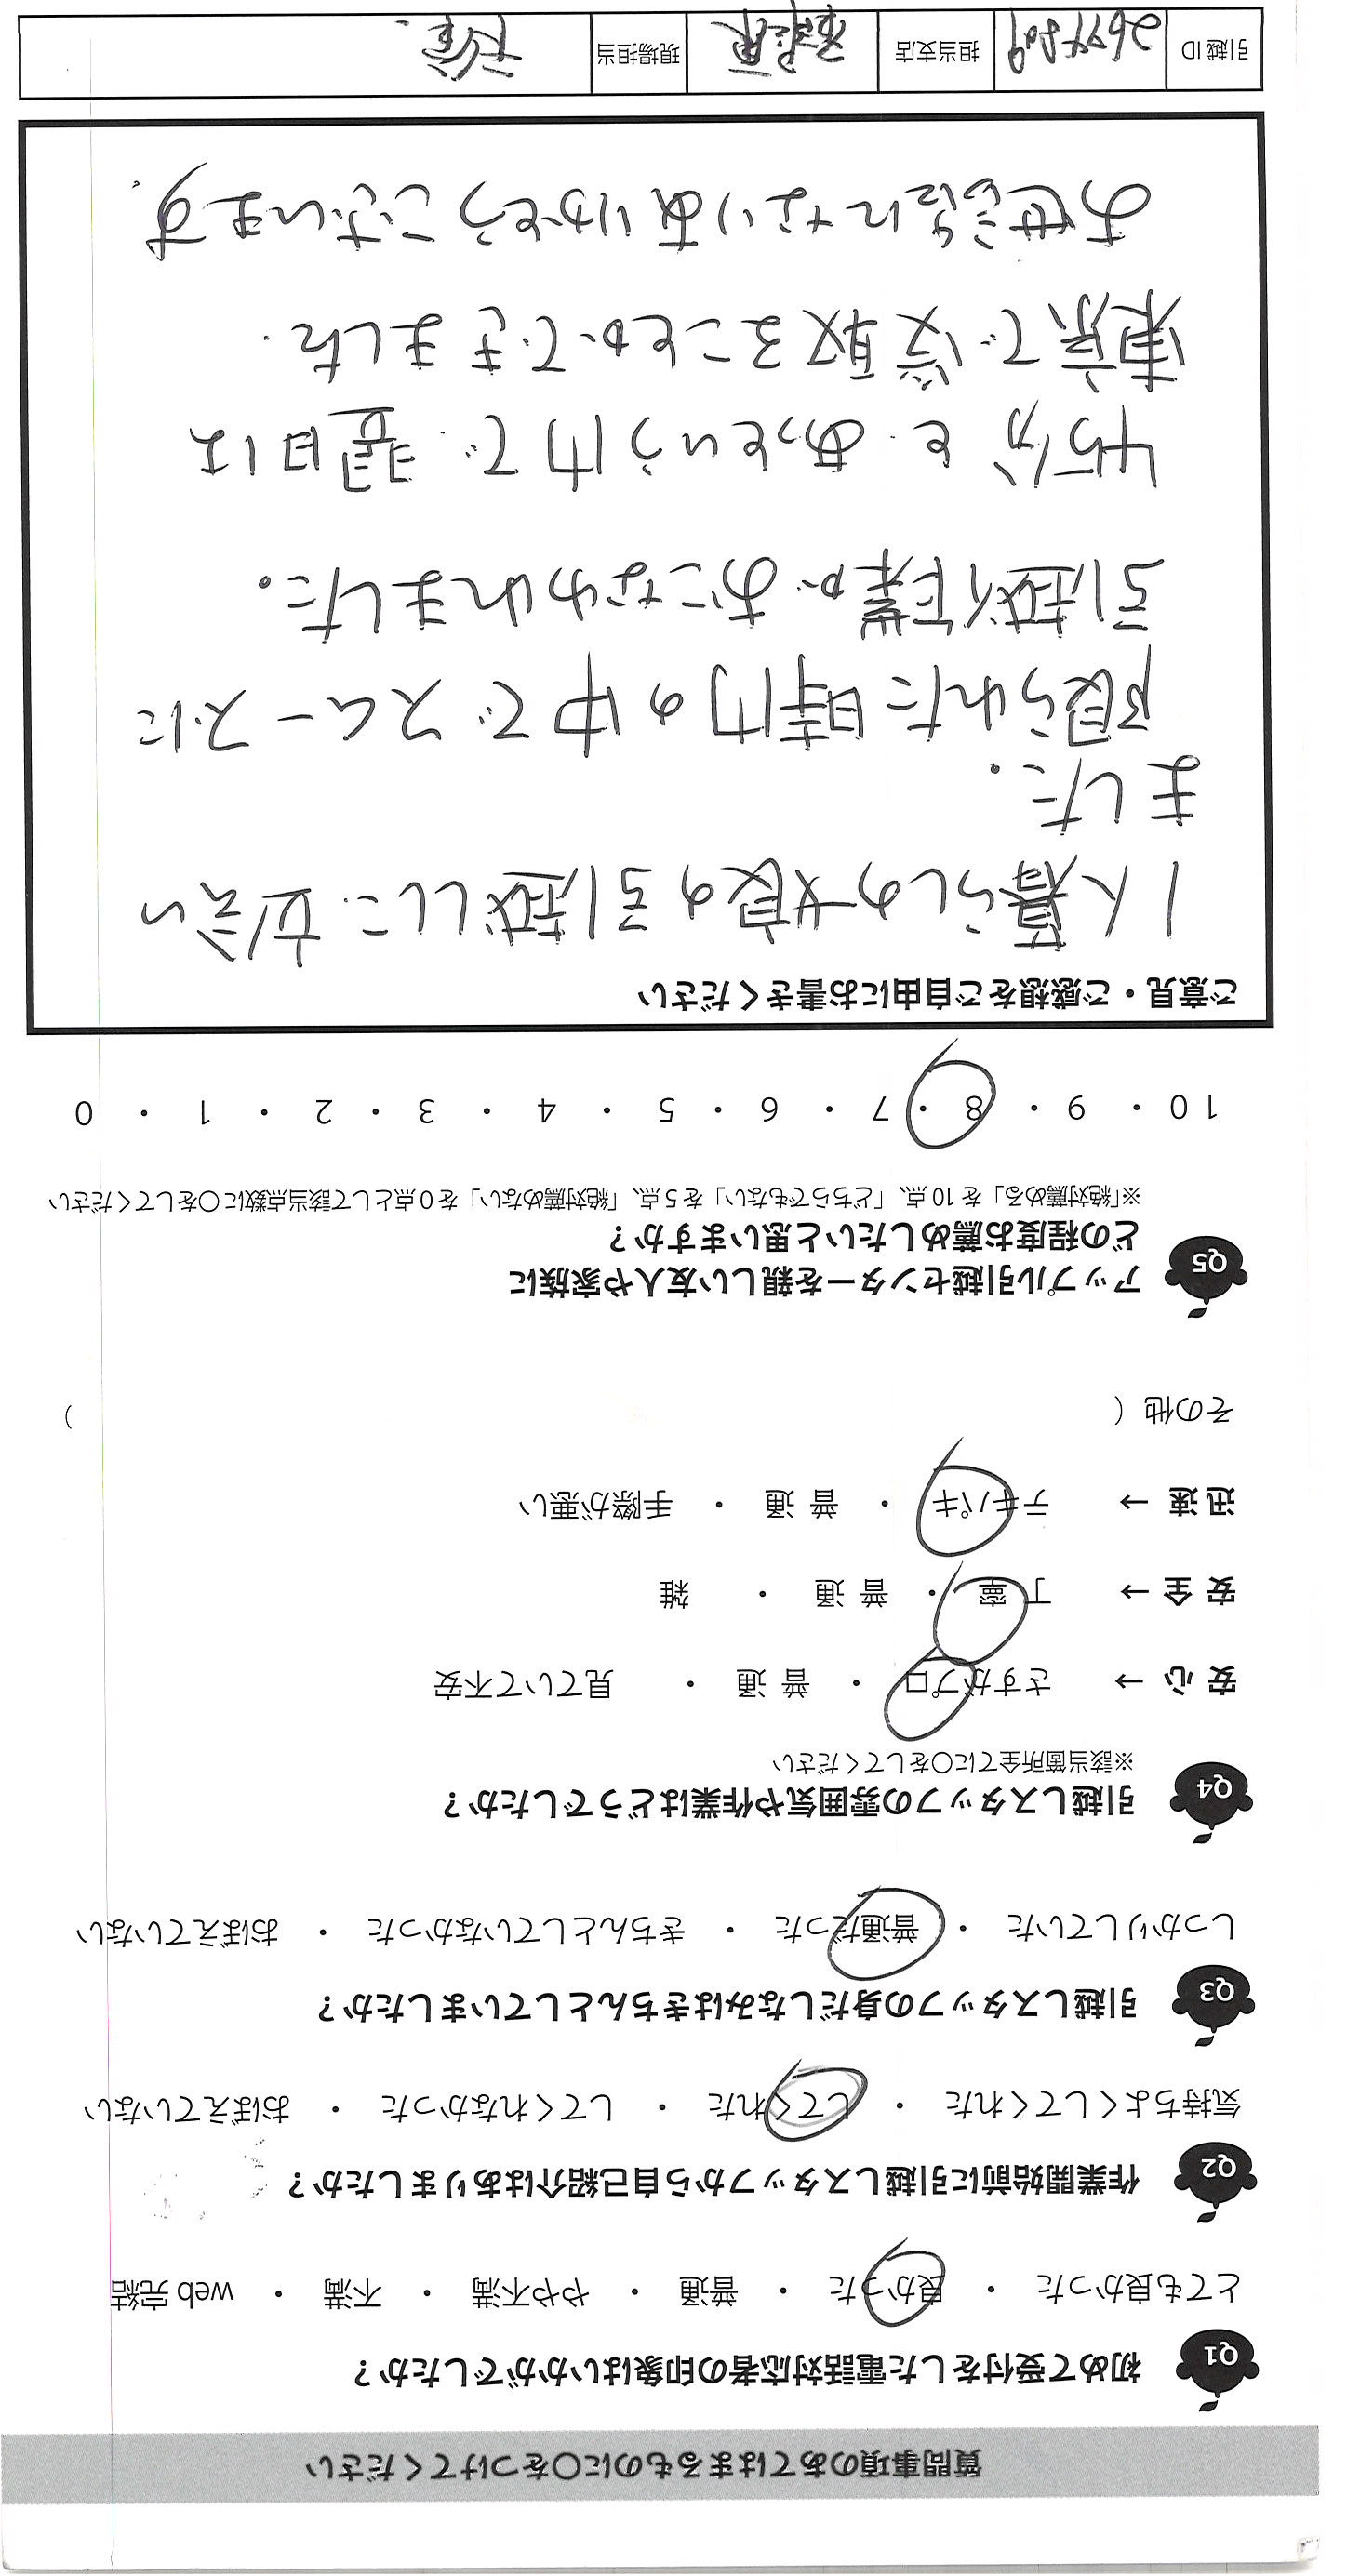 質問事項のあてはまるものに○をつけてください
Q1 初めて受付をした電話対応者の印象はいかがでしたか？
とても良かった ・ 良かった ・ 普通 ・ やや不満 ・ 不満 ・ web 完結
Q2 作業開始前に引越しスタッフから自己紹介はありましたか？
気持ちよくしてくれた ・ してくれた ・ してくれなかった ・ おぼえていない
Q3 引越しスタッフの身だしなみはきちんとしていましたか？
しっかりしていた ・ 普通だった ・ きちんとしていなかった ・ おぼえていない
Q4 引越しスタッフの雰囲気や作業はどうでしたか？
※該当箇所全てに○をしてください
安 心 → さすがプロ ・ 普 通 ・ 見ていて不安
安 全 → 丁 寧 ・ 普 通 ・ 雑
迅 速 → テキパキ ・ 普 通 ・ 手際が悪い
その他（ ）
Q5 アップル引越センターを親しい友人や家族に
どの程度お薦めしたいと思いますか？
※「絶対薦める」を 10 点、「どちらでもない」を 5 点、「絶対薦めない」を 0 点として該当点数に○をしてください
10 ・ 9 ・ 8 ・ 7 ・ 6 ・ 5 ・ 4 ・ 3 ・ 2 ・ 1 ・ 0
ご意見・ご感想をご自由にお書きください
1人暮らしの娘の引越しに立会い
ました.
限られた時間の中でスムーズに
引越作業がおこなわれました。
45分とあっという間で翌日は
東京で受取ることができました.
お世話になりありがとうございます.
引越 ID 2674209 担当支店 現場担当